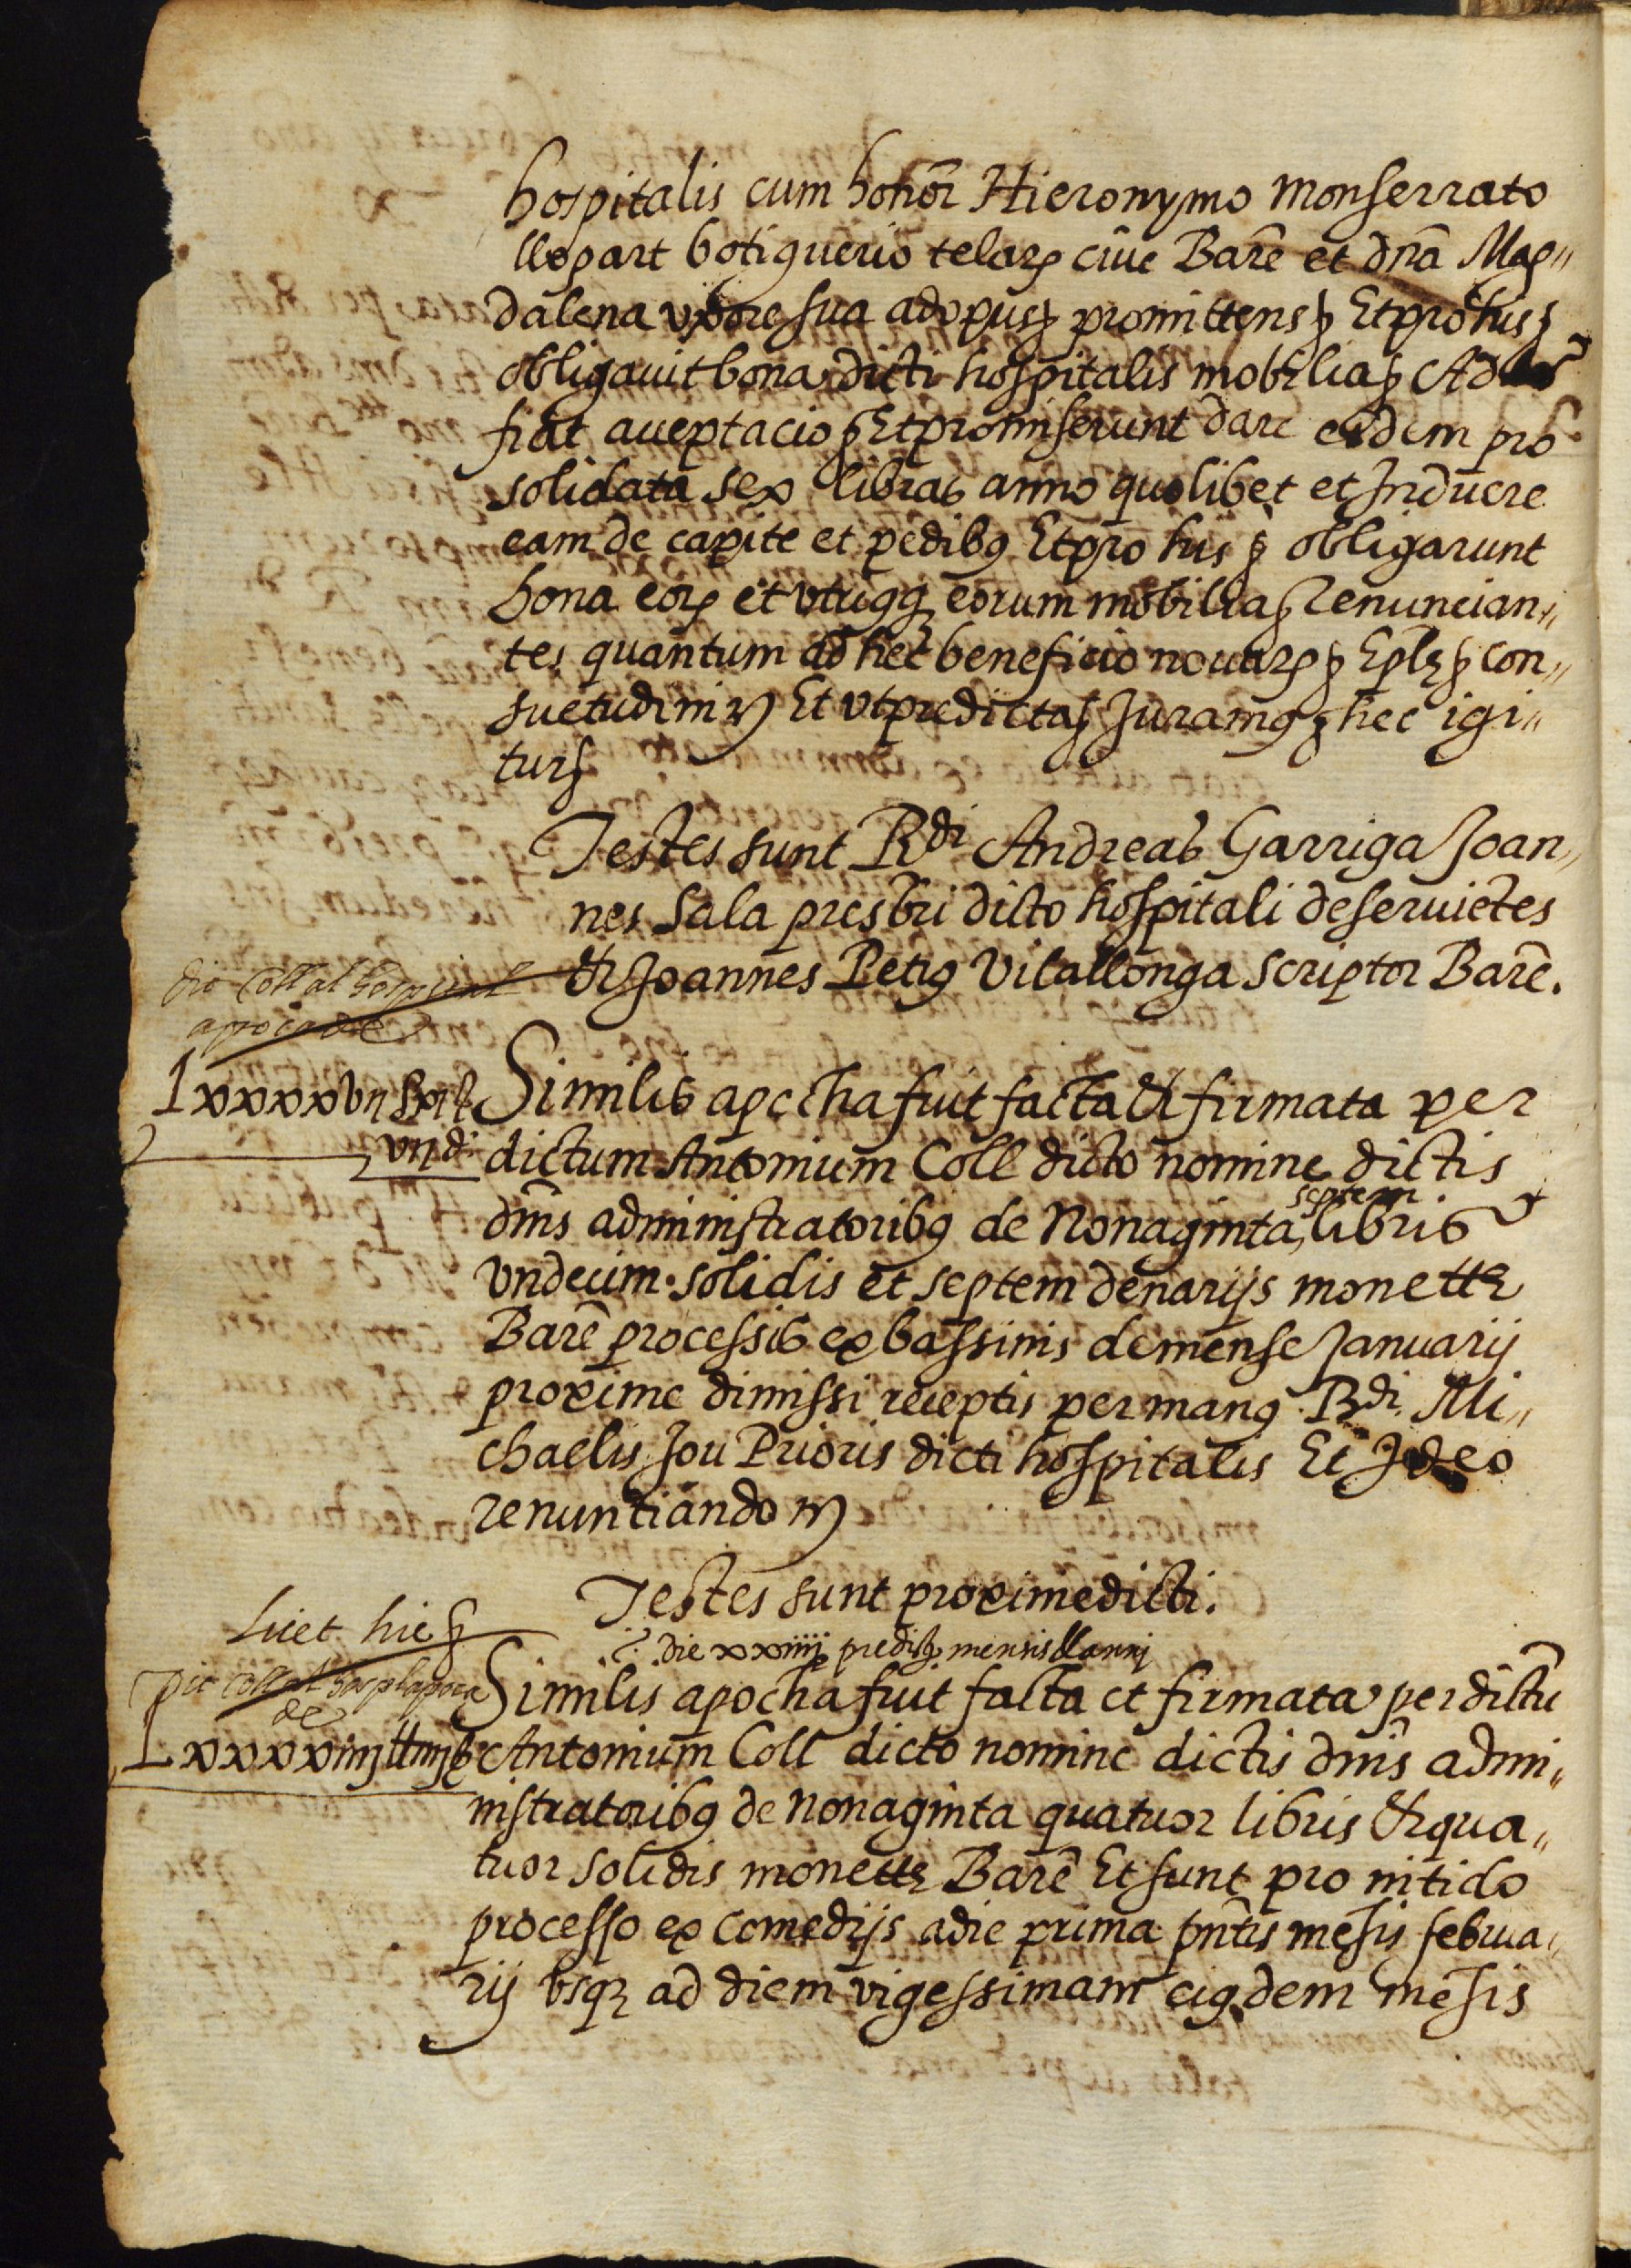 hospitalis cum honor̄ Hieronymo Monserrato
llopart botiguerio telarꝝ ciue Barē et dn̄a Mag„
dalena vxore sua ad opus ꝫ promittens ꝫ Et pro his ꝫ
obligauit bona dicti hospitalis mobilia ꝫ Ad
fiat acceptacio ꝫ Et promiserunt dare eidem pro
solidata sex libras anno quolibet et Induere
eam de capite et pedibꝰ Et pro his ꝫ obligarunt
bona eorꝝ et vtriꝰqꝫ eorum mobilia ꝫ renuncian„
tes quantum ad hec beneficio nouarꝝ ꝫ Eplꝫ ꝫ con„
suetudini ꝫ Et vt predicta ꝫ Juramꝰ ꝫ hec igi„
tur ꝫ
Testes sunt Rdi Andreas Garriga Joan„
nes Sala presbri dicto hospitali deseruiētes
& Joannes Petrꝰ Vilallonga scriptor Barē.
Dit Coll al hospital
apoca de
Lxxxxvij ll xi ß
vij d.
Similis apocha fuit facta & firmata per
dictum Antonium Coll dicto nomine dictis
septem
dn̄is administratoribꝰ de Nonaginta, libris
vndecim solidis et septem denarijs monettꝫ
Barē processis ex bassinis de mense Januarij
proxime dimissi receptis per manꝰ Rdi Mi„
chaelis Jou Prioris dicti hospitalis Et Ideo
renuntiando ꝫ
Testes sunt proxime dicti.
Licet hic ꝫ
die xxiiij predictꝫ mensis & anni
Dit Coll al hospl apoca
de
Lxxxxiiij ll iiij ß
Similis apocha fuit facta et firmata per dictū
Antonium Coll dicto nomine dictis dn̄is admi„
nistratoribꝰ de Nonaginta quatuor libris & qua„
tuor solidis monettꝫ Barē Et sunt pro nitido
processo ex comedijs a die prima pn̄tis mēsis februa„
rij vsqꝫ ad diem vigessimam eiꝰdem mēsis